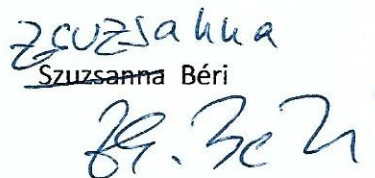 Zsuzsanna
Szuzsanna Béri